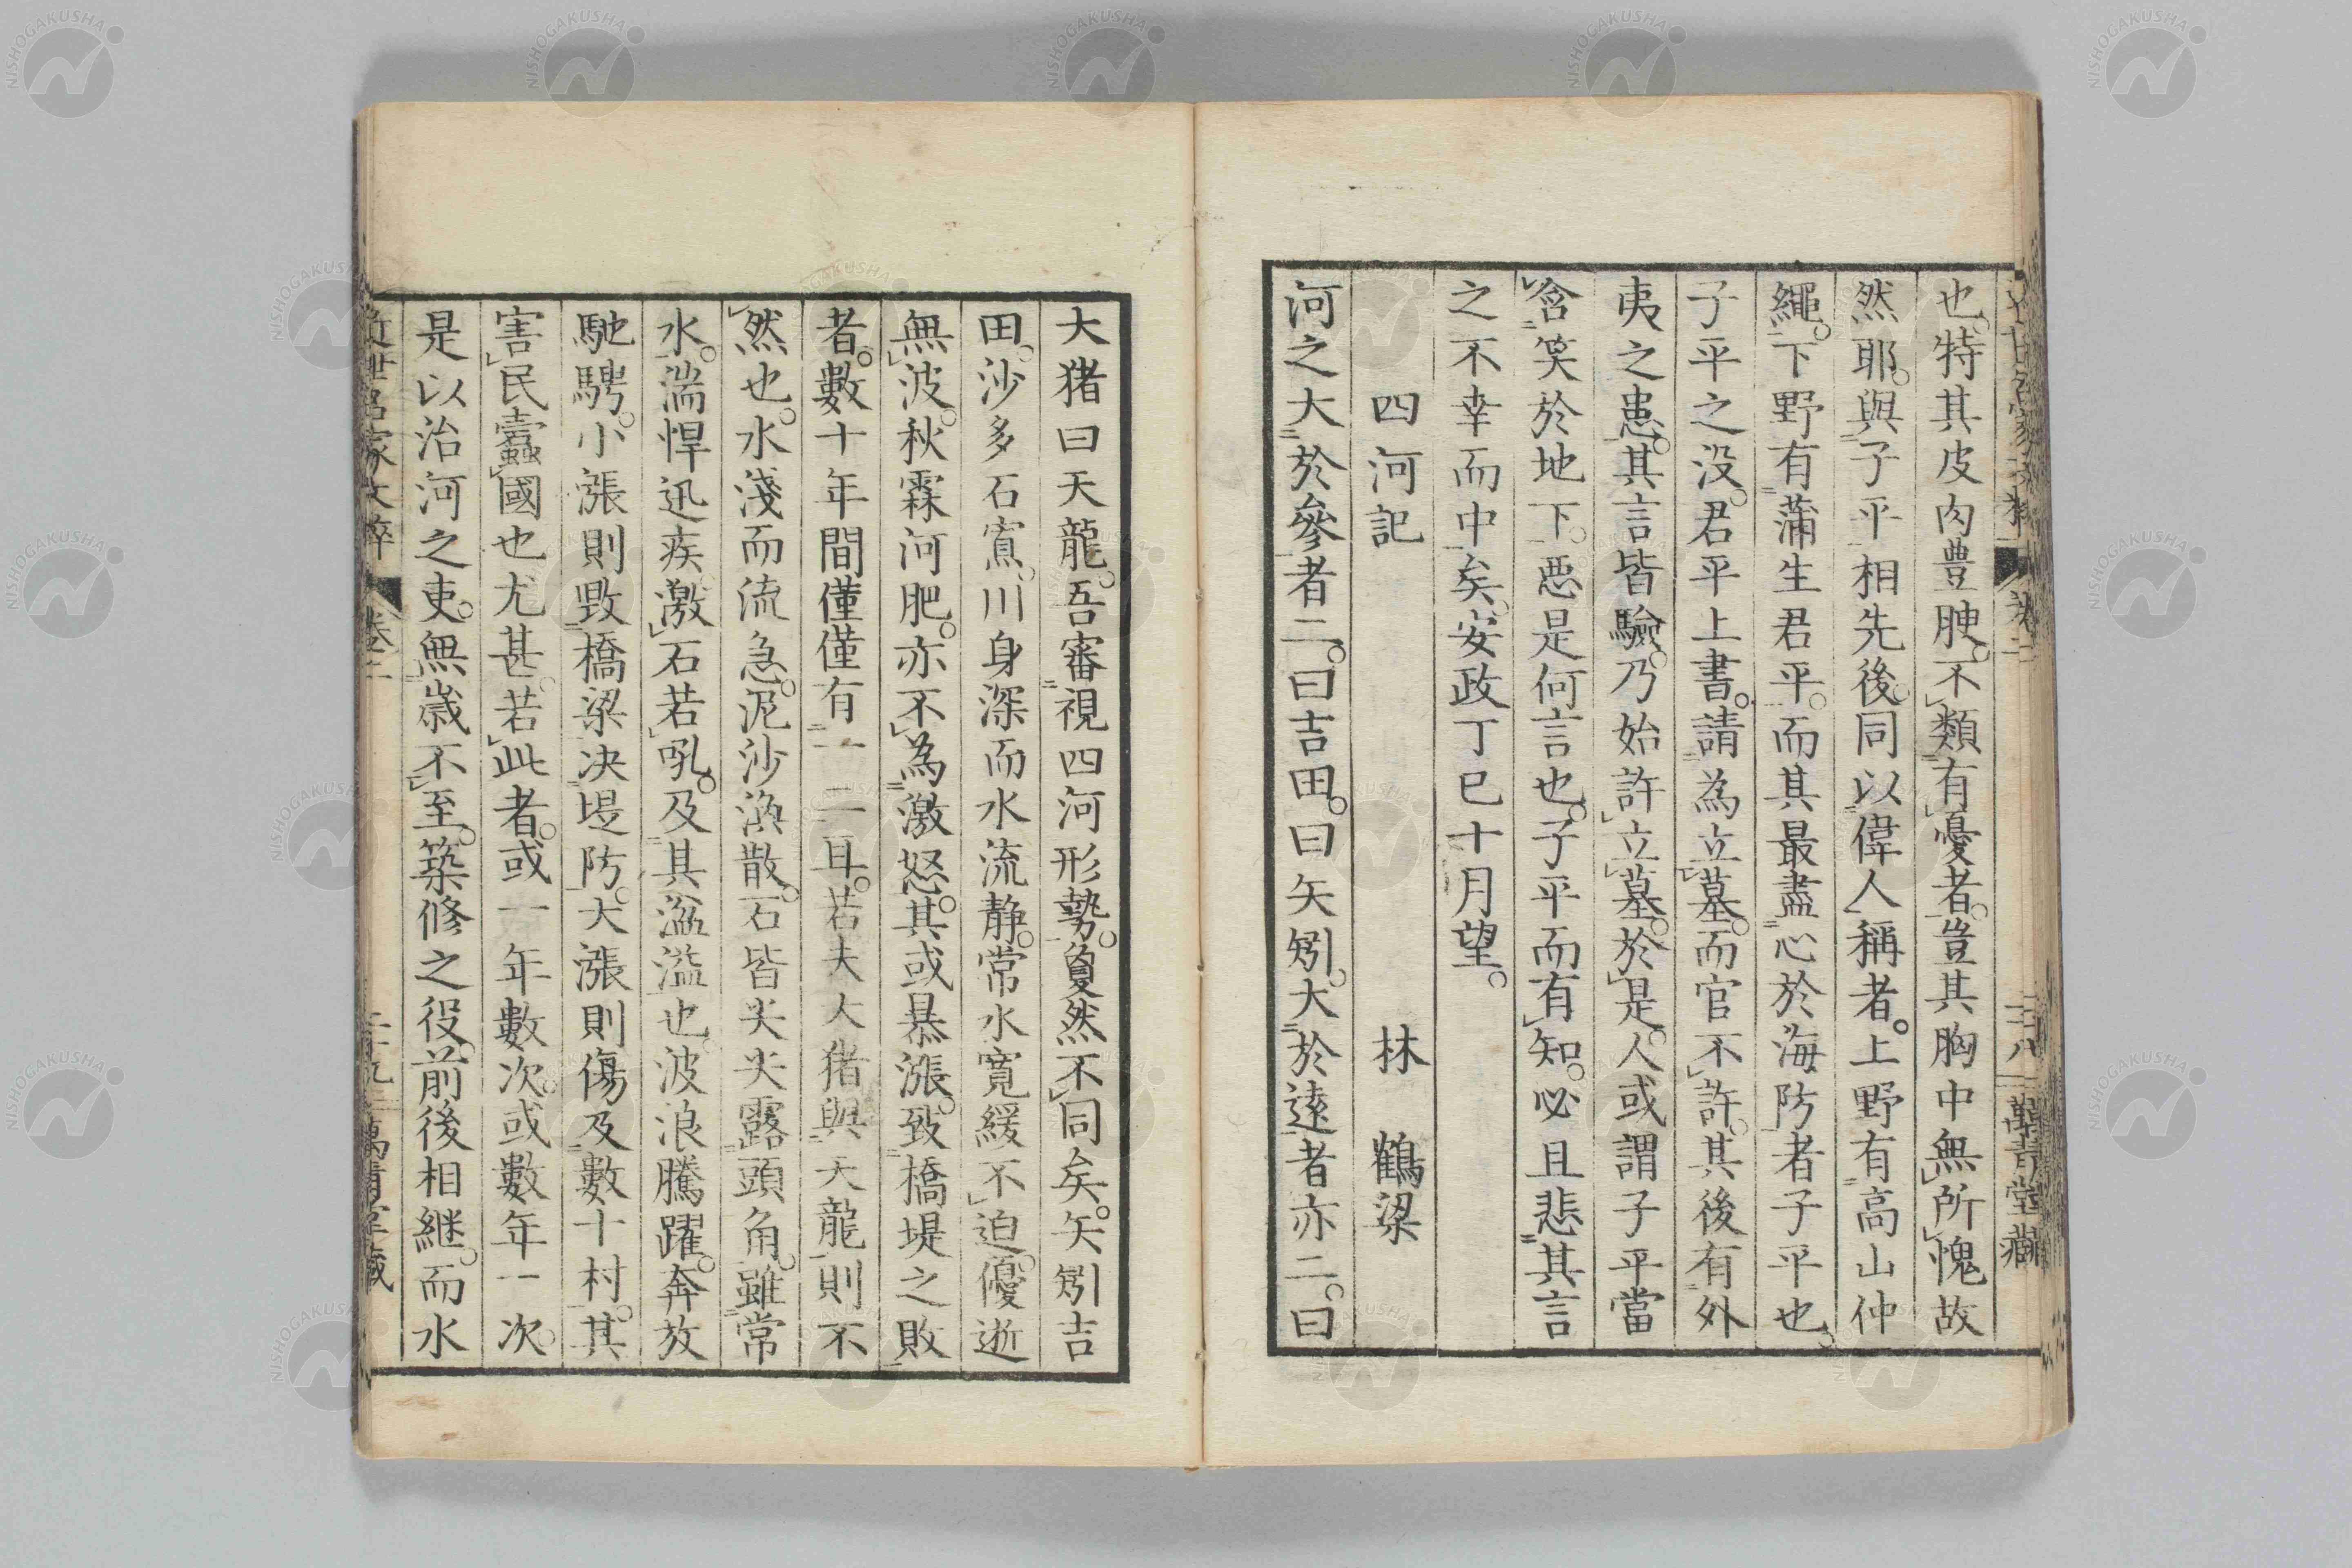 也。特其皮肉豊腴。不類有憂者。豈其胸中無所愧故
然耶。與子平相先後。同以偉人稱者。上野有高山仲
繩。下野有蒲生君平。而其最盡心於海防者子平也。
子平之没。君平上書。請為立墓。而官不許。其後有外
夷之患。其言皆驗。乃始許立墓。於是。人或謂子平當
含笑於地下。悪是何言也。子平而有知。必且悲其言
之不幸而中矣。安政丁巳十月望。
四河記 林 鶴梁
河之大於參者二。曰吉田。曰矢矧。大於遠者亦二。曰
大猪曰天龍。吾審視四河形勢。敻然不同矣。矢矧吉
田。沙多石寡。川身深而水流静。常水寛緩不迫。優逝
無波。秋霖河肥。亦不為激怒。其或暴漲。致橋堤之敗
者。數十年間僅僅有一二耳。若夫大猪與天龍則不
然也。水淺而流急。泥沙渙散。石皆尖尖露頭角。雖常
水。湍悍迅疾。激石若吼。及其湓溢也。波浪騰躍。奔放
馳騁。小漲則毀橋梁決堤防。大漲則傷及數十村。其
害民蠹國也尤甚。若此者。或一年數次。或數年一次。
是以治河之吏。無歳不至。築修之役。前後相継。而水
近世名家文粹 卷二 二十九 萬青堂藏